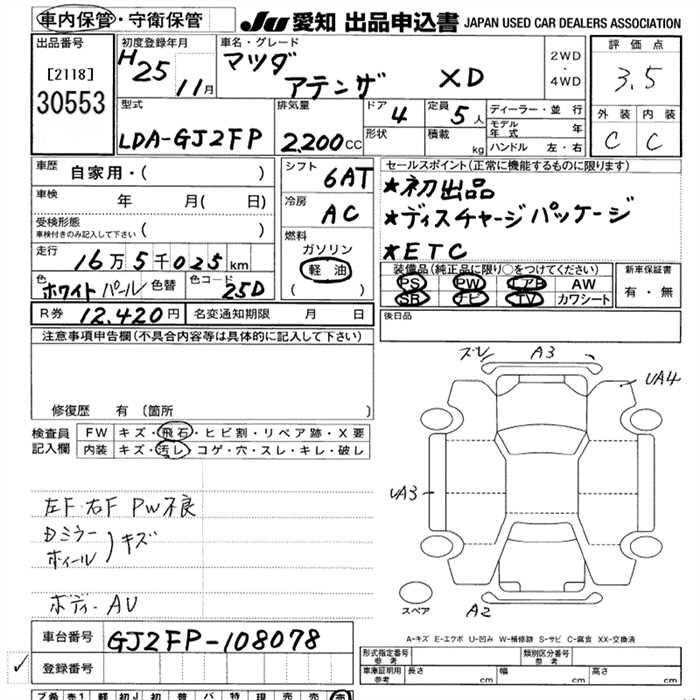 車内保管・守衛保管
JU 愛知 出品申込書 JAPAN USED CAR DEALERS ASSOCIATION
出品番号
[2118]
30553
初度登録年月
H25 11月
車名・グレード
マツダ
アテンザ XD
2WD
・
4WD
評価点
3.5
外装 内装
C C
型式
LDA-GJ2FP
排気量
2,200CC
ドア 4
形状
定員 5人
積載 kg
ディーラー・並行
モデル年式 年
ハンドル 左・右
車歴 自家用・( )
車検 年 月( 日)
受検形態
車検付きのみ記入して下さい ( )
走行 16万5千025km
色 ホワイトパール 色替 色コード 25D
シフト 6AT
冷房 AC
燃料
ガソリン
軽油
( )
セールスポイント(正常に機能するものに限ります)
★初出品
★ディスチャージパッケージ
★ETC
装備品(純正品に限り○をつけてください)
PS PW エアB AW
SR ナビ TV カワシート
新車保証書
有・無
R券 12,420円 名変通知期限 月 日
後日品
注意事項申告欄(不具合内容等は具体的に記入して下さい)
修復歴 有(箇所 )
検査員記入欄
FW キズ・飛石・ヒビ割・リペア跡・X要
内装 キズ・汚し・コゲ・穴・スレ・キレ・破し
左F・右F PW不良
ミラー
ホイール )キズ
ボディ-AU
A3
UA4
UA3
A2
スペア
A-キズ E-エクボ U-凹み W-補修跡 S-サビ C-腐食 XX-交換済
車台番号 GJ2FP-108078
✓ 登録番号
形式指定番号 参考
類別区分番号 参考
車庫証明用 参考 長さ cm 幅 cm 高さ cm